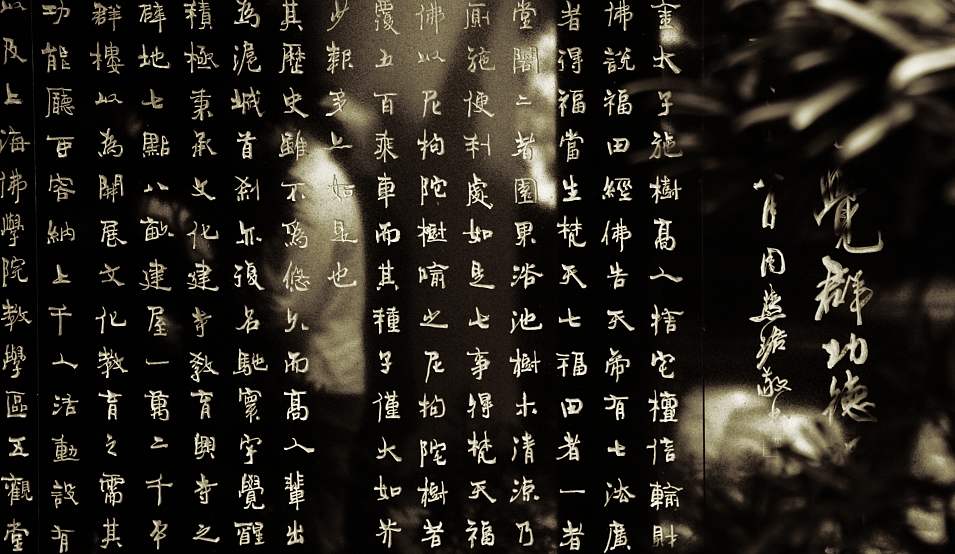 覺群功德
八月周
太子施樹高人捨宅檀信輸財
佛說福田經佛告天帝有七法廣
者得福當生梵天七福田者一者
堂閣二者園果浴池樹木清涼乃
廁施便利處如是七事得梵天福
佛以尼拘陀樹喻之尼拘陀樹者
覆五百乘車而其種子僅大如芥
少報多上如是也
其歷史雖不為悠久而高人輩出
為滬城首剎亦復名馳寰宇覺醒
積極秉承文化建寺教育興寺之
辟地七點八畝建屋一萬二千平
群樓以為開展文化教育之需其
功能廳可容納上千人活動設有
以及上海佛學院教學區五觀堂